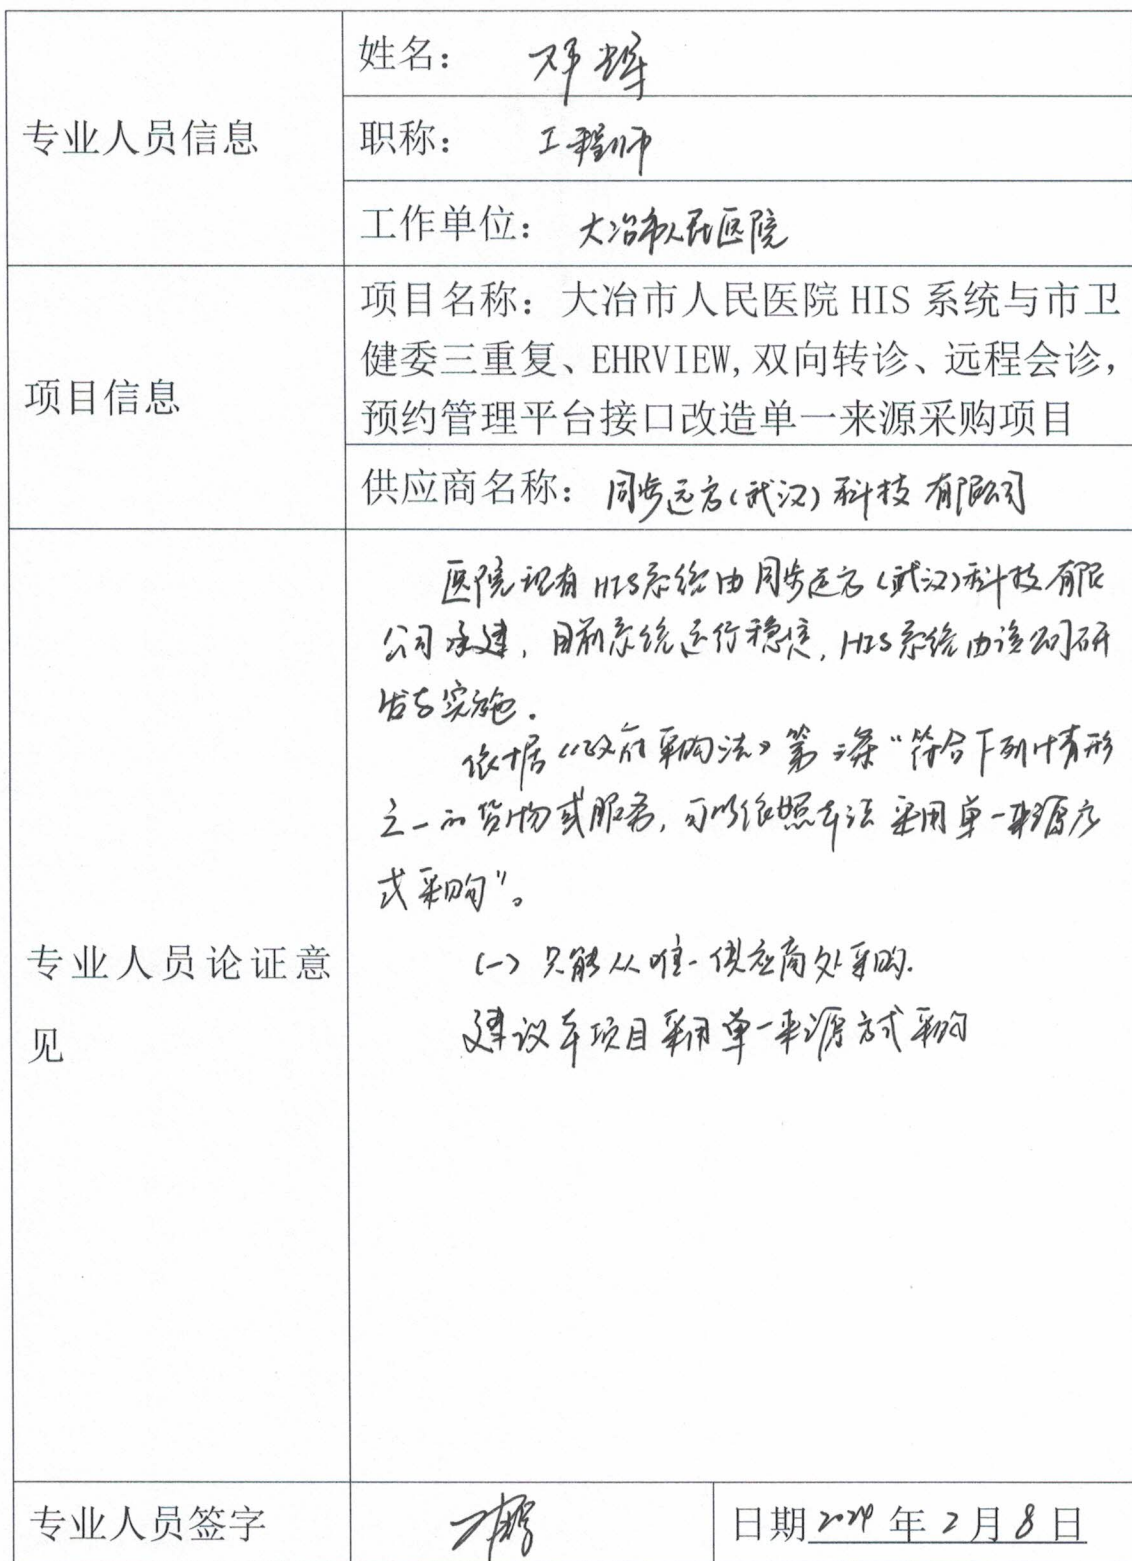 姓名： 邓辉
专业人员信息
职称： 工程师
工作单位： 大冶市人民医院
项目名称：大冶市人民医院 HIS 系统与市卫
健委三重复、EHRVIEW,双向转诊、远程会诊，
项目信息
预约管理平台接口改造单一来源采购项目
供应商名称： 同步远方(武汉)科技有限公司
医院现有HIS系统由同步远方(武汉)科技有限
公司承建，目前系统运行稳定，HIS系统由该公司研
发与实施.
依据《政府采购法》第 条“符合下列情形
之一的货物或服务，可以依照本法采用单一来源方
式采购”。
专业人员论证意
见
(一) 只能从唯一供应商处采购.
建议本项目采用单一来源方式采购
专业人员签字
日期 2024 年 2 月 8 日